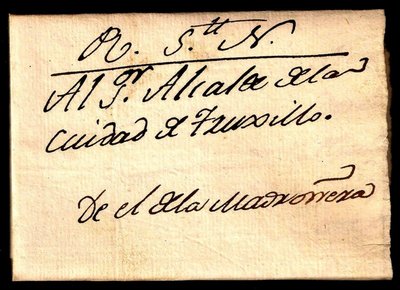 R. S.tt N.
Al Sr. Alcalde de la
Ciudad de Truxillo.
De el de la Madroñera